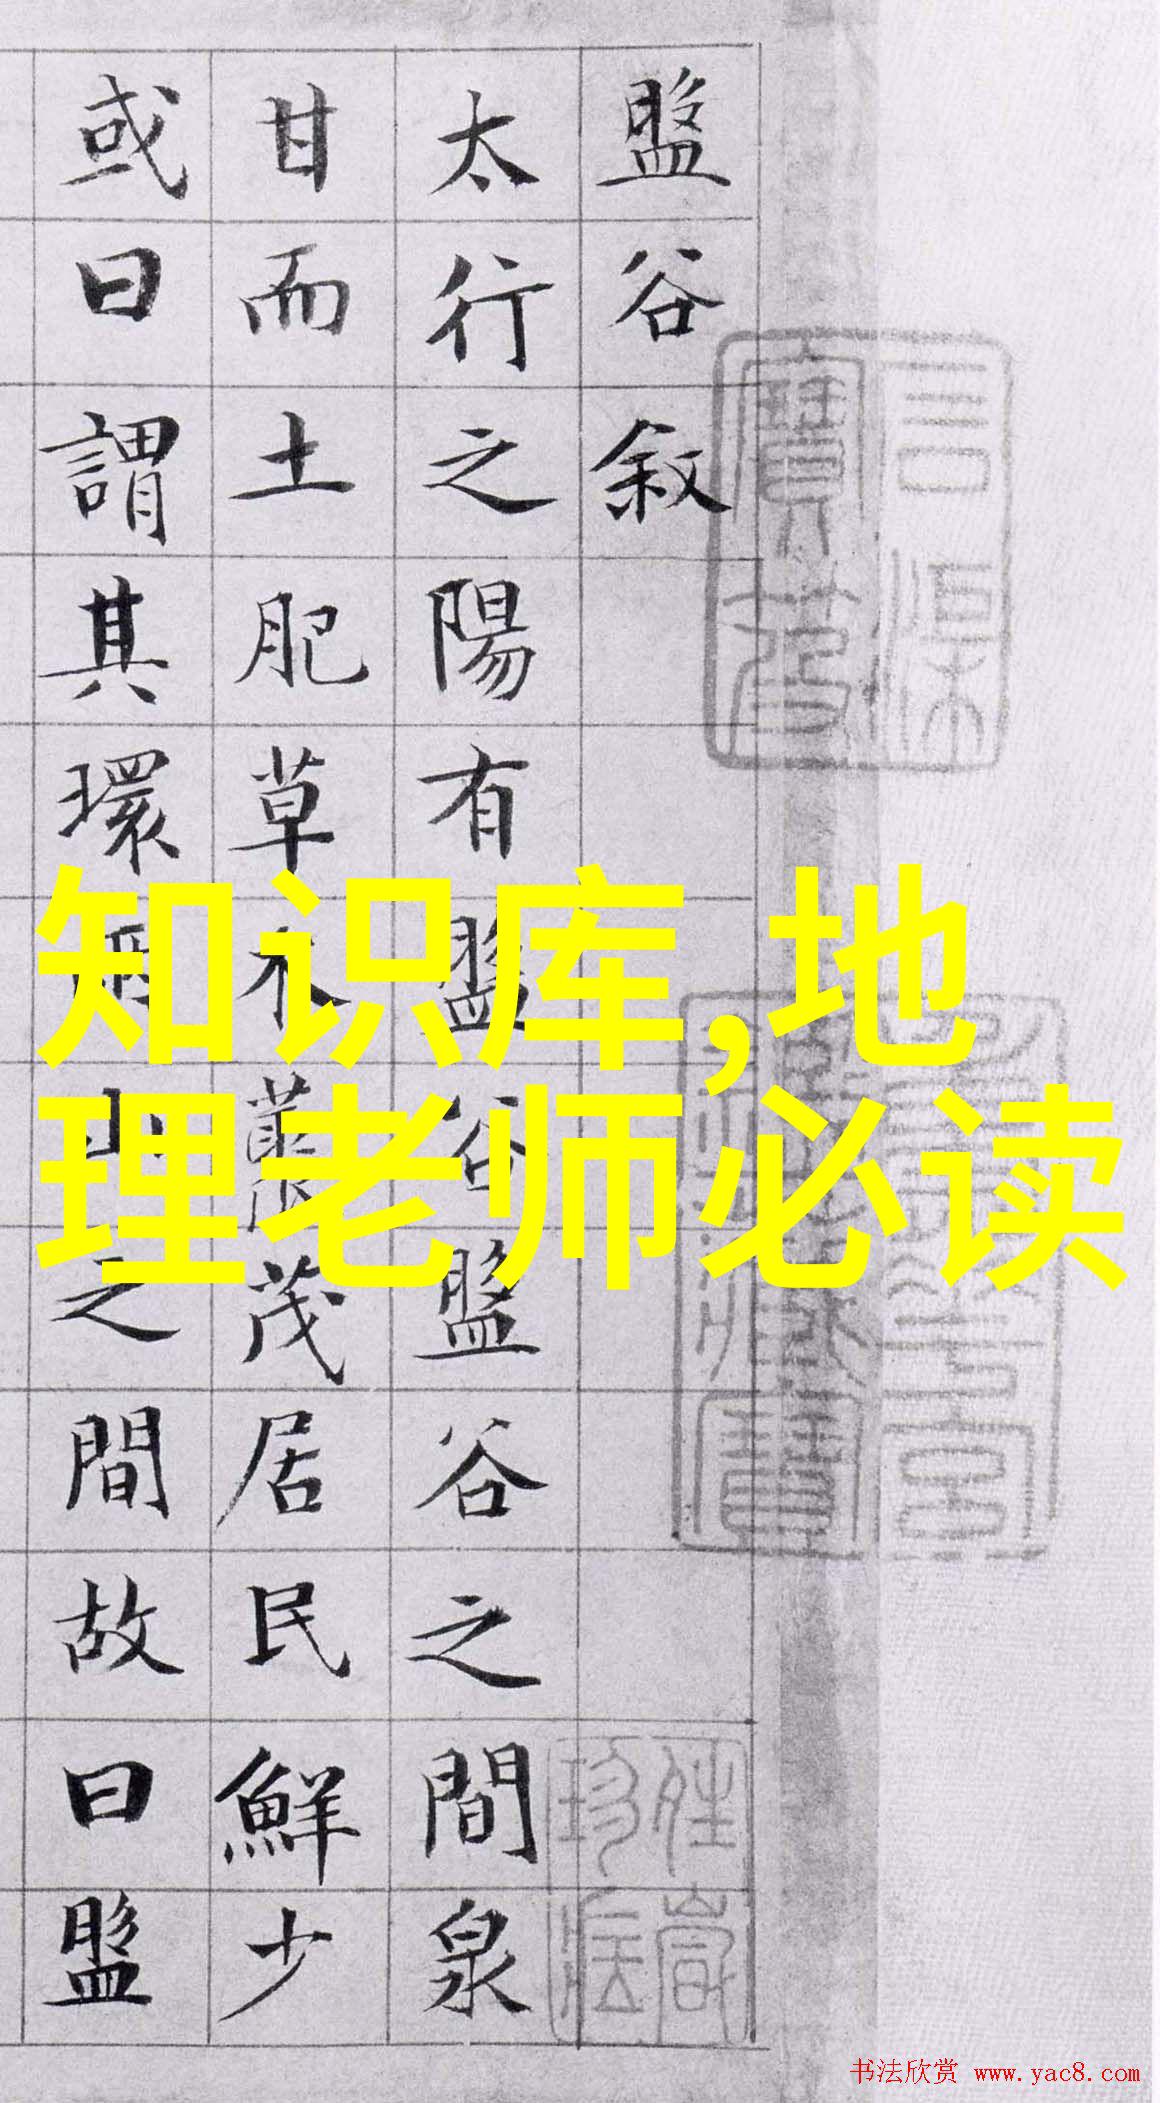 盤谷敘
太行之陽有盤谷盤谷之間泉
甘而土肥草木藂茂居民鮮少
或曰謂其環兩山之間故曰盤
知识库,地
理老师必读
书法欣赏 www.yac8.com